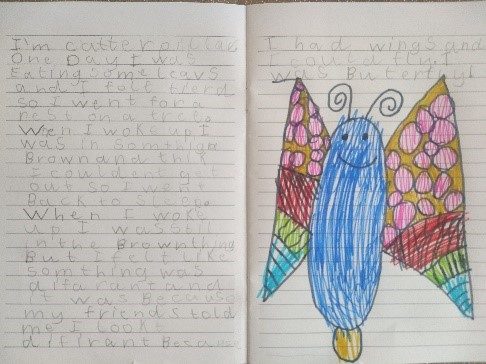 I'm catterpillar
One Day I was
Eating some leavs
and I felt tierd
so I went for a
rest on a
When I woke up I
was in somthign
Brown and thin
I couldnt get
out so I went
Back to sleep
When I woke
up I was still
in the Brown thing
But I felt like
somthing was
difarant and
it was Because
my friends told
me I look
difirant Becaus
I had wings and
I could fly I
was Buterfly!